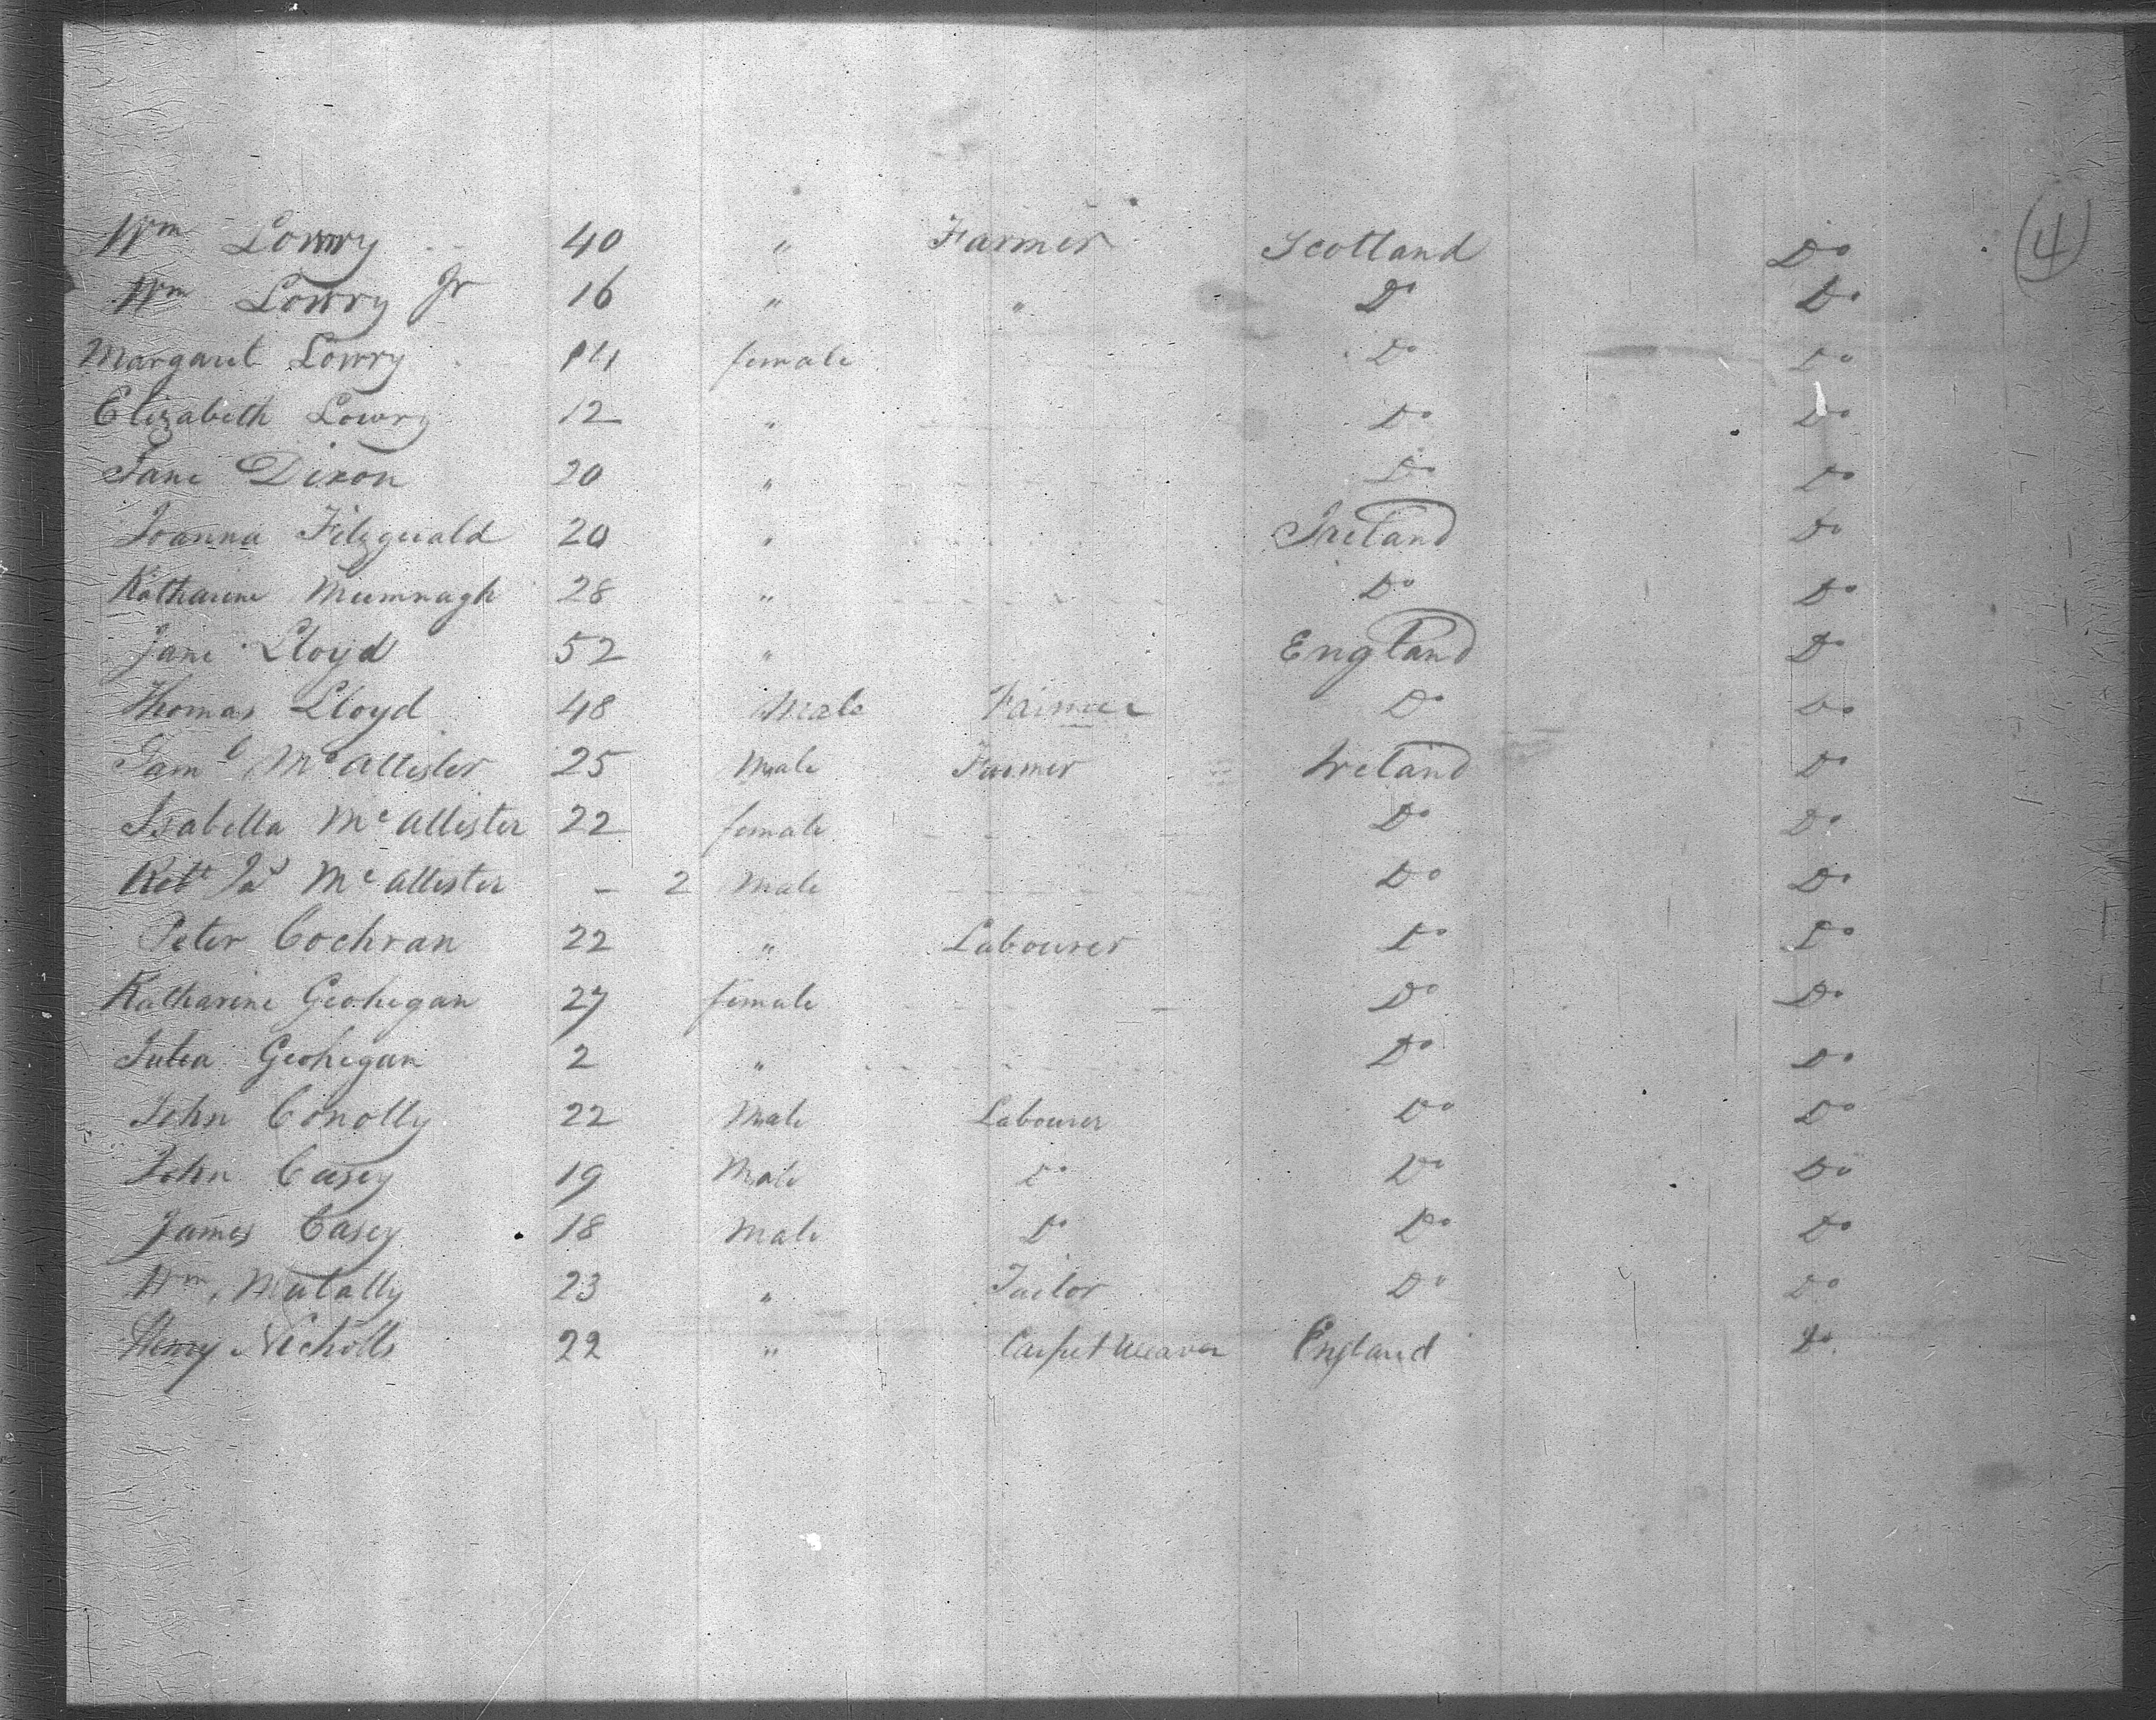 Wm Lowry 40 " Farmer Scotland Do (4)
Wm Lowry Jr 16 " " Do Do
Margaret Lowry 14 female Do Do
Elizabeth Lowry 12 " Do Do
Jane Dixon 20 " Do Do
Joanna Fitzgerald 20 " Ireland Do
Katharine 28 " Do Do
Jane Lloyd 52 " England Do
Thomas Lloyd 48 Male Farmer Do Do
Saml McAllister 25 Male Farmer Ireland Do
Isabella McAllister 22 female Do Do
McAllister - 2 Male Do Do
Peter Cochran 22 " Labourer Do Do
Katharine Geohegan 27 female Do Do
Julia Geohegan 2 " Do Do
John Conolly 22 Male Labourer Do Do
John Casey 19 Male Do Do Do
James Casey 18 Male Do Do Do
Wm 23 " Tailor Do Do
Henry Nicholls 22 " Carpet Weaver England Do